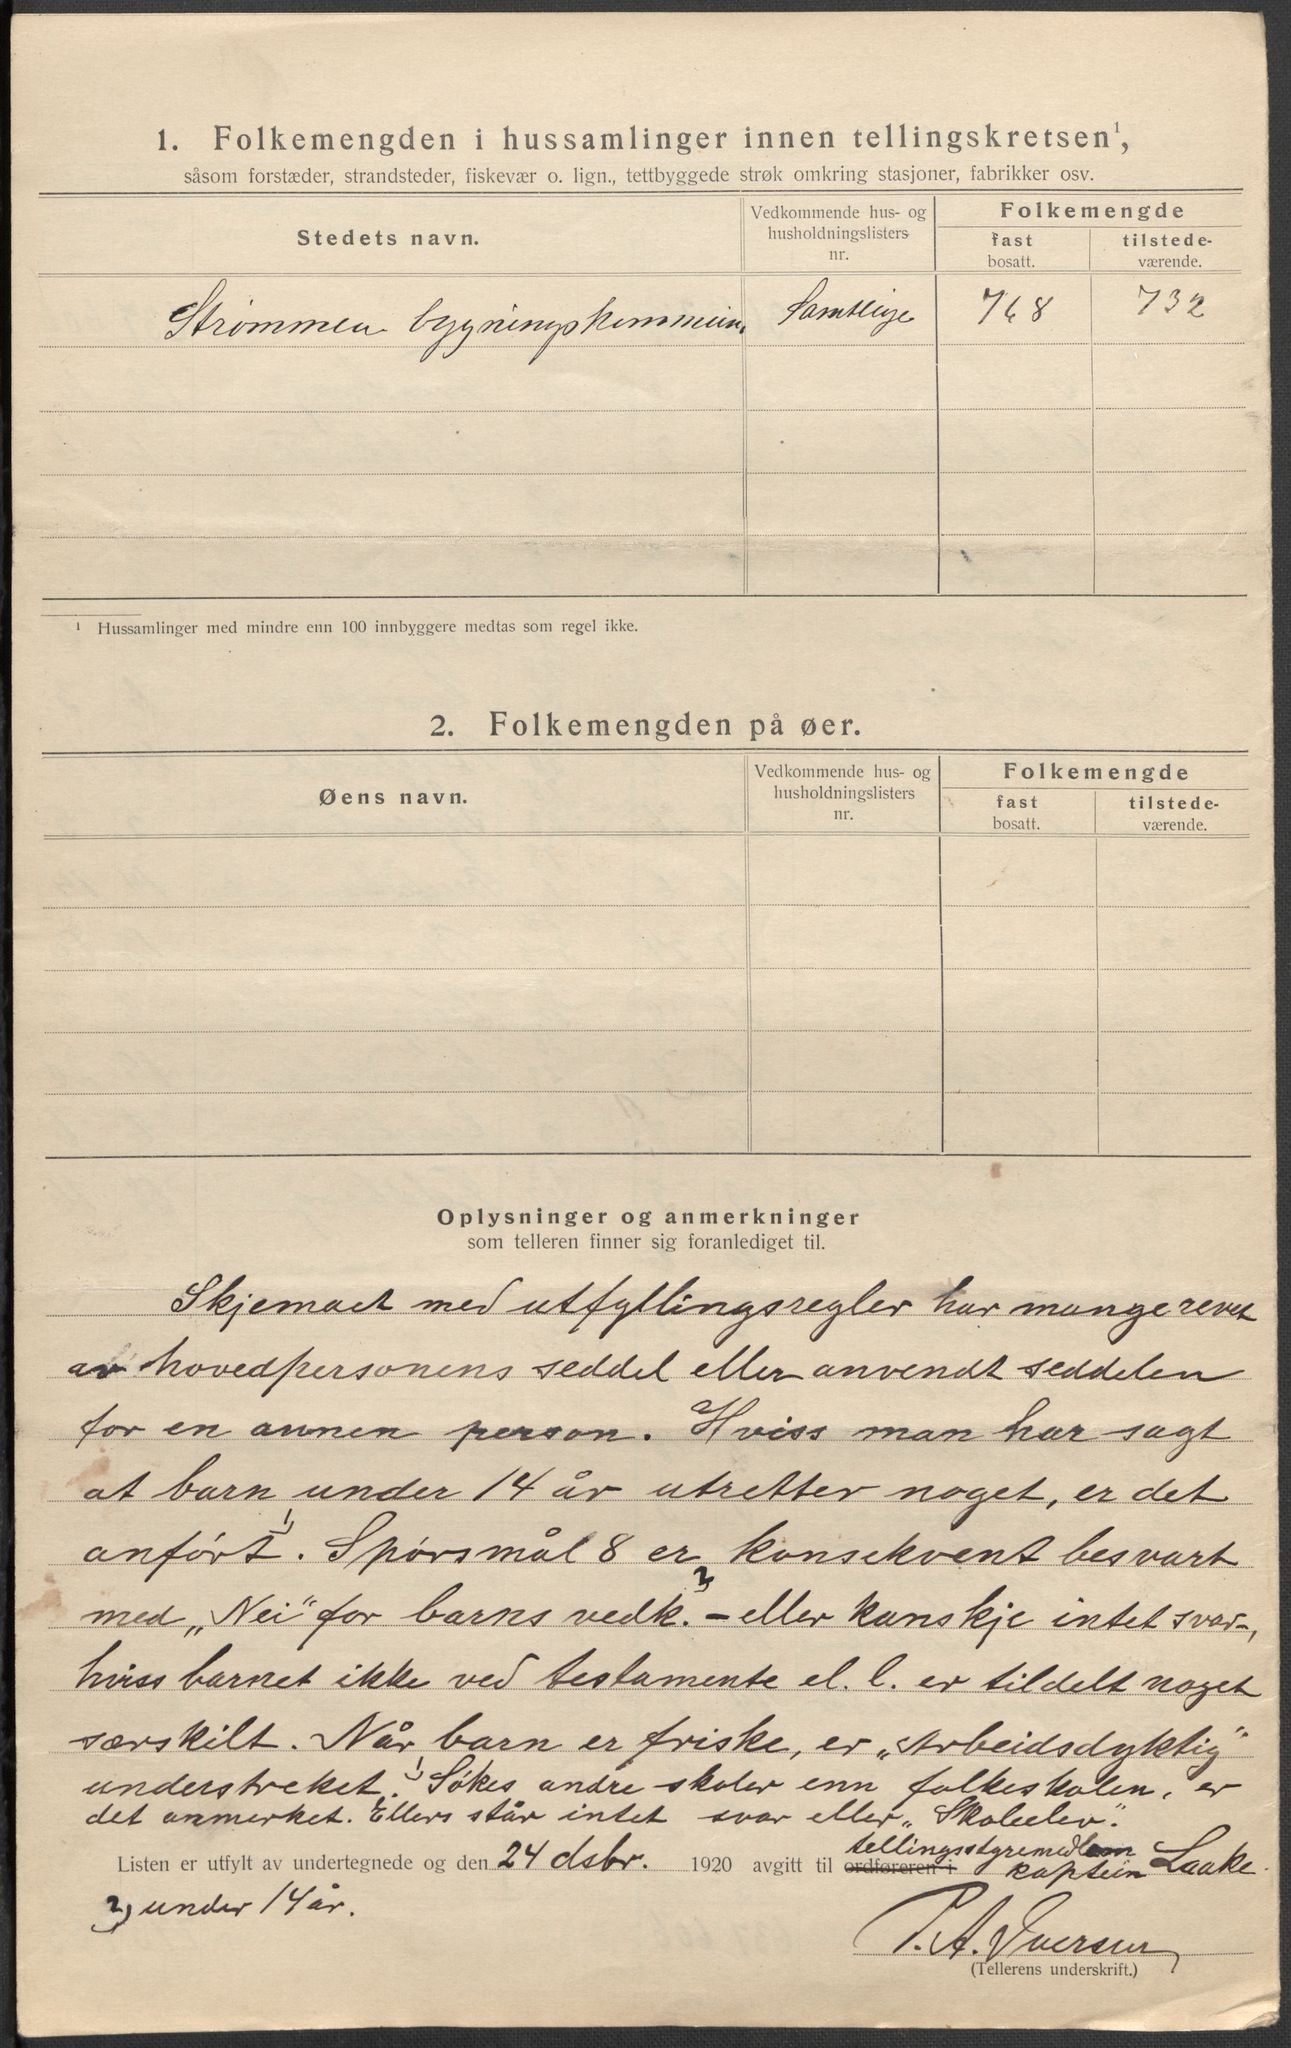 1. Folkemengden i hussamlinger innen tellingskretsen¹,
såsom forstæder, strandsteder, fiskevær o. lign., tettbyggede strøk omkring stasjoner, fabrikker osv.
Stedets navn.
Vedkommende hus- og husholdningslisters nr.
Folkemengde
fast bosatt.
tilstede-værende.
Strømmen bygningskommun. Samtlige 768 732
¹ Hussamlinger med mindre enn 100 innbyggere medtas som regel ikke.
2. Folkemengden på øer.
Øens navn.
Vedkommende hus- og husholdningslisters nr.
Folkemengde
fast bosatt.
tilstede-værende.
Oplysninger og anmerkninger
som telleren finner sig foranlediget til.
Skjemaet med utfyllingsregler har mange revet
av hovedpersonens seddel eller anvendt seddelen
for en annen person. Hviss man har sagt
at barn under 14 år utretter noget, er det
anført 1). Spørsmål 8 er konsekvent besvart
med „Nei“ for barns vedk. 2) – eller kanskje intet svar –,
hviss barnet ikke ved testamente el. l. er tildelt noget
særskilt. Når barn er friske, er „Arbeidsdyktig“
understreket. 1) Søkes andre skoler enn folkeskolen, er
det anmerket. Ellers står intet svar eller „Skoleelev“.
tellingsstyremedlem
Listen er utfylt av undertegnede og den 24 dsbr. 1920 avgitt til ordføreren i kaptein Laake.
2) under 14 år.
P. A. Iversen
(Tellerens underskrift.)